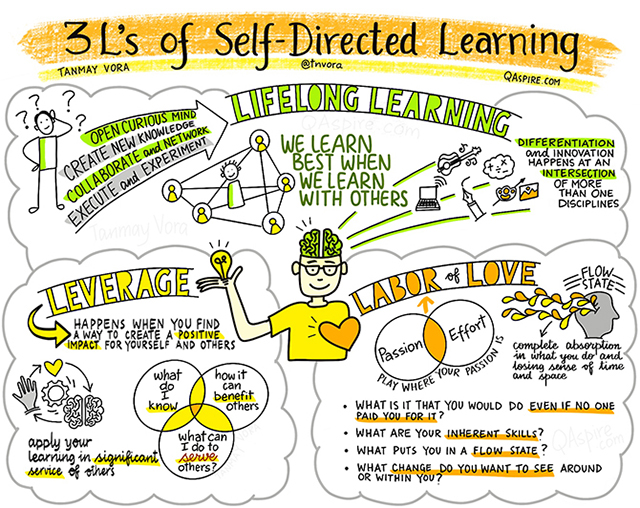 3 L's of Self-Directed Learning
TANMAY VORA
@tnvora
QASPIRE.com
LIFELONG LEARNING
QAspire.com
? ? ? ?
OPEN CURIOUS MIND
CREATE NEW KNOWLEDGE
COLLABORATE and NETWORK
EXECUTE and EXPERIMENT
Tanmay Vora
WE LEARN
BEST WHEN
WE LEARN
WITH OTHERS
DIFFERENTIATION
and INNOVATION
HAPPENS AT AN
INTERSECTION
OF MORE
THAN ONE
DISCIPLINES
LEVERAGE
HAPPENS WHEN YOU FIND
A WAY TO CREATE A POSITIVE
IMPACT FOR YOURSELF AND OTHERS
what
do I
know
how it
can
benefit
others
what can
I do to
serve
others?
apply your
learning in significant
service of others
LABOR of LOVE
Passion
Effort
PLAY WHERE YOUR PASSION IS
FLOW
STATE
complete absorption
in what you do and
losing sense of time
and space
• WHAT IS IT THAT YOU WOULD DO EVEN IF NO ONE
PAID YOU FOR IT?
• WHAT ARE YOUR INHERENT SKILLS?
• WHAT PUTS YOU IN A FLOW STATE?
• WHAT CHANGE DO YOU WANT TO SEE AROUND
OR WITHIN YOU?
QAspire.com